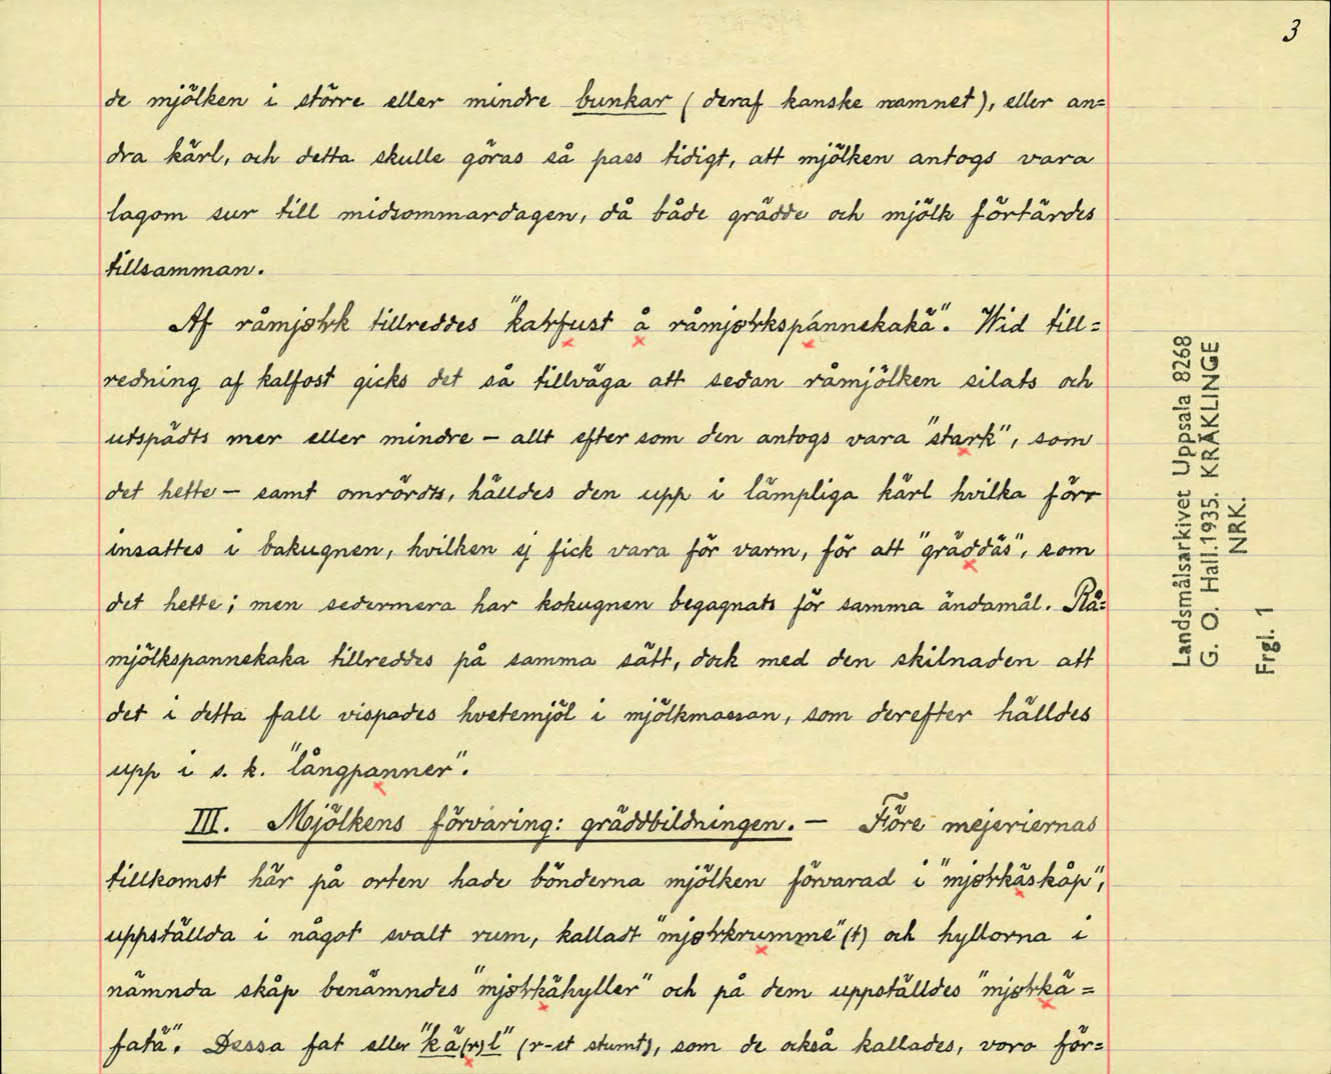 3
de mjölken i större eller mindre bunkar (deraf kanske namnet), eller an=
dra kärl, och detta skulle göras så pass tidigt, att mjölken antogs vara
lagom sur till midsommardagen, då både grädde och mjölk förtärdes
tillsamman.
Af råmjølk tillreddes "kalfust å råmjølkspánnekakä". Wid till=
redning af kalfost gicks det så tillväga att sedan råmjölken silats och
utspädts mer eller mindre – allt efter som den antogs vara "stark", som
det hette – samt omrördts, hälldes den upp i lämpliga kärl hvilka förr
insattes i bakugnen, hvilken ej fick vara för varm, för att "gräddäs", som
det hette; men sedermera har kokugnen begagnats för samma ändamål. Rå=
mjölkspannekaka tillreddes på samma sätt, dock med den skilnaden att
det i detta fall vispades hvetemjöl i mjölkmassan, som derefter hälldes
upp i s. k. "långpanner".
III. Mjölkens förvaring: gräddbildningen. – Före mejeriernas
tillkomst här på orten hade bönderna mjölken förvarad i "mjølkäskåp",
uppställda i något svalt rum, kalladt "mjølkrumme"(t) och hyllorna i
nämnda skåp benämndes "mjølkähyller" och på dem uppställdes "mjølkä=
fatä". Dessa fat eller "kä(r)l" (r-et stumt), som de också kallades, voro för=
Landsmålsarkivet Uppsala 8268
G. O. Hall. 1935. KRÄKLINGE
NRK.
Frgl. 1